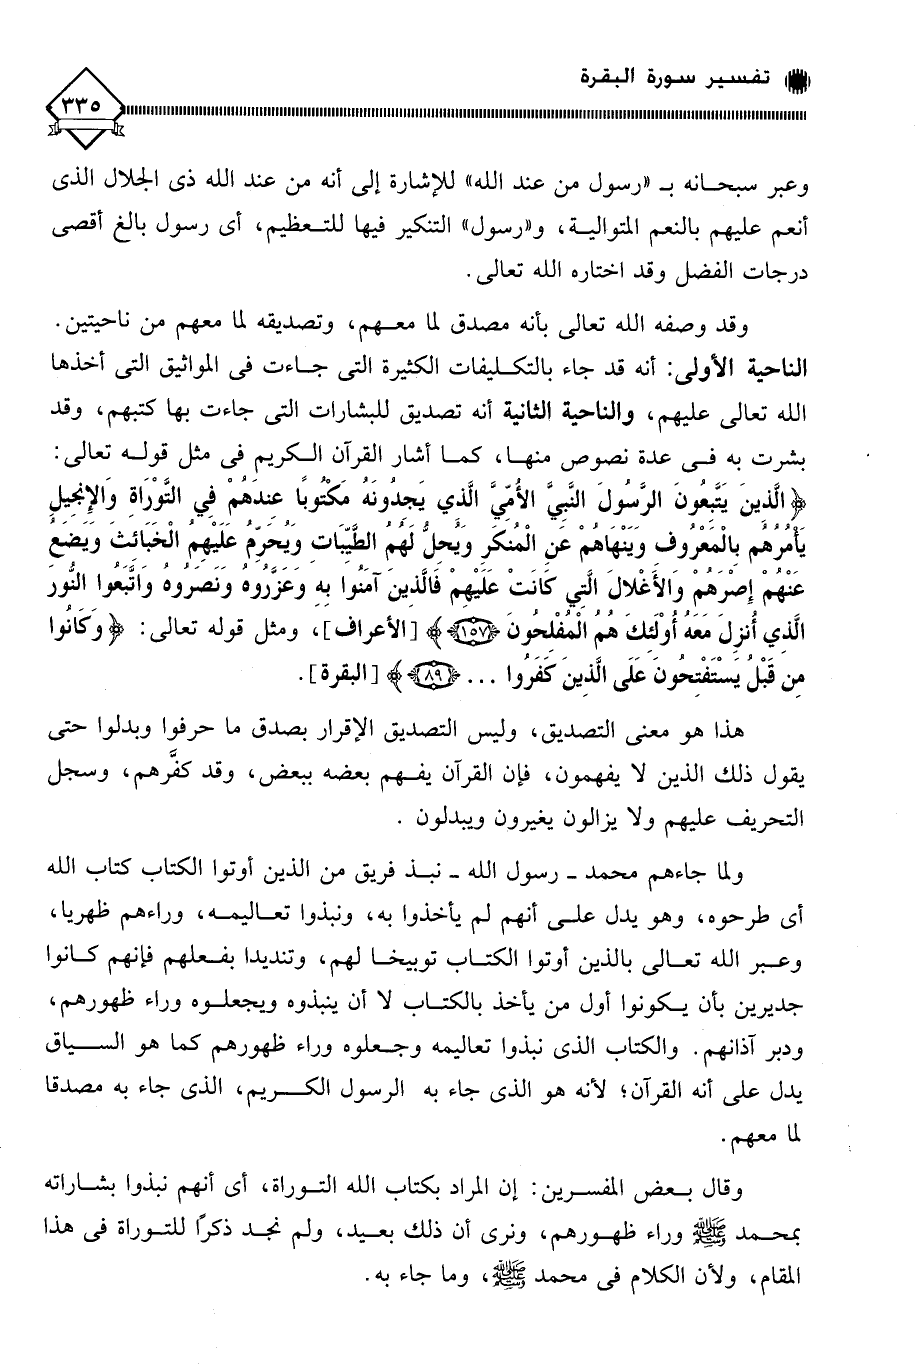 تفسير سورة البقرة
٣٣٥
وعبر سبحانه بـ «رسول من عند الله» للإشارة إلى أنه من عند الله ذى الجلال الذى
أنعم عليهم بالنعم المتوالية، و«رسول» التنكير فيها للتعظيم، أى رسول بالغ أقصى
درجات الفضل وقد اختاره الله تعالى.
وقد وصفه الله تعالى بأنه مصدق لما معهم، وتصديقه لما معهم من ناحيتين.
الناحية الأولى: أنه قد جاء بالتكليفات الكثيرة التى جاءت فى المواثيق التى أخذها
الله تعالى عليهم، والناحية الثانية أنه تصديق للبشارات التى جاءت بها كتبهم، وقد
بشرت به فى عدة نصوص منها، كما أشار القرآن الكريم فى مثل قوله تعالى:
﴿الَّذِينَ يَتَّبِعُونَ الرَّسُولَ النَّبِيَّ الأُمِّيَّ الَّذِي يَجِدُونَهُ مَكْتُوبًا عِندَهُمْ فِي التَّوْرَاةِ وَالإِنجِيلِ
يَأْمُرُهُم بِالْمَعْرُوفِ وَيَنْهَاهُمْ عَنِ الْمُنكَرِ وَيُحِلُّ لَهُمُ الطَّيِّبَاتِ وَيُحَرِّمُ عَلَيْهِمُ الْخَبَائِثَ وَيَضَعُ
عَنْهُمْ إِصْرَهُمْ وَالأَغْلالَ الَّتِي كَانَتْ عَلَيْهِمْ فَالَّذِينَ آمَنُوا بِهِ وَعَزَّرُوهُ وَنَصَرُوهُ وَاتَّبَعُوا النُّورَ
الَّذِي أُنزِلَ مَعَهُ أُولَئِكَ هُمُ الْمُفْلِحُونَ (١٥٧)﴾ [الأعراف]، ومثل قوله تعالى: ﴿وَكَانُوا
مِن قَبْلُ يَسْتَفْتِحُونَ عَلَى الَّذِينَ كَفَرُوا ... (٨٩)﴾ [البقرة].
هذا هو معنى التصديق، وليس التصديق الإقرار بصدق ما حرفوا وبدلوا حتى
يقول ذلك الذين لا يفهمون، فإن القرآن يفهم بعضه ببعض، وقد كفَّرهم، وسجل
التحريف عليهم ولا يزالون يغيرون ويبدلون .
ولما جاءهم محمد ـ رسول الله ـ نبذ فريق من الذين أوتوا الكتاب كتاب الله
أى طرحوه، وهو يدل على أنهم لم يأخذوا به، ونبذوا تعاليمه، وراءهم ظهريا،
وعبر الله تعالى بالذين أوتوا الكتاب توبيخا لهم، وتنديدا بفعلهم فإنهم كانوا
جديرين بأن يكونوا أول من يأخذ بالكتاب لا أن ينبذوه ويجعلوه وراء ظهورهم،
ودبر آذانهم. والكتاب الذى نبذوا تعاليمه وجعلوه وراء ظهورهم كما هو السياق
يدل على أنه القرآن؛ لأنه هو الذى جاء به الرسول الكريم، الذى جاء به مصدقا
لما معهم.
وقال بعض المفسرين: إن المراد بكتاب الله التوراة، أى أنهم نبذوا بشاراته
بمحمد ﷺ وراء ظهورهم، ونرى أن ذلك بعيد، ولم نجد ذكرًا للتوراة فى هذا
المقام، ولأن الكلام فى محمد ﷺ، وما جاء به.